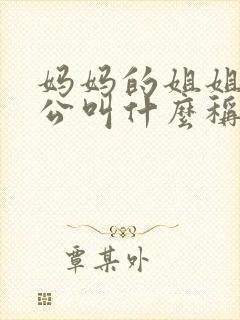 妈妈的姐姐
公叫什麼稱
覃某外